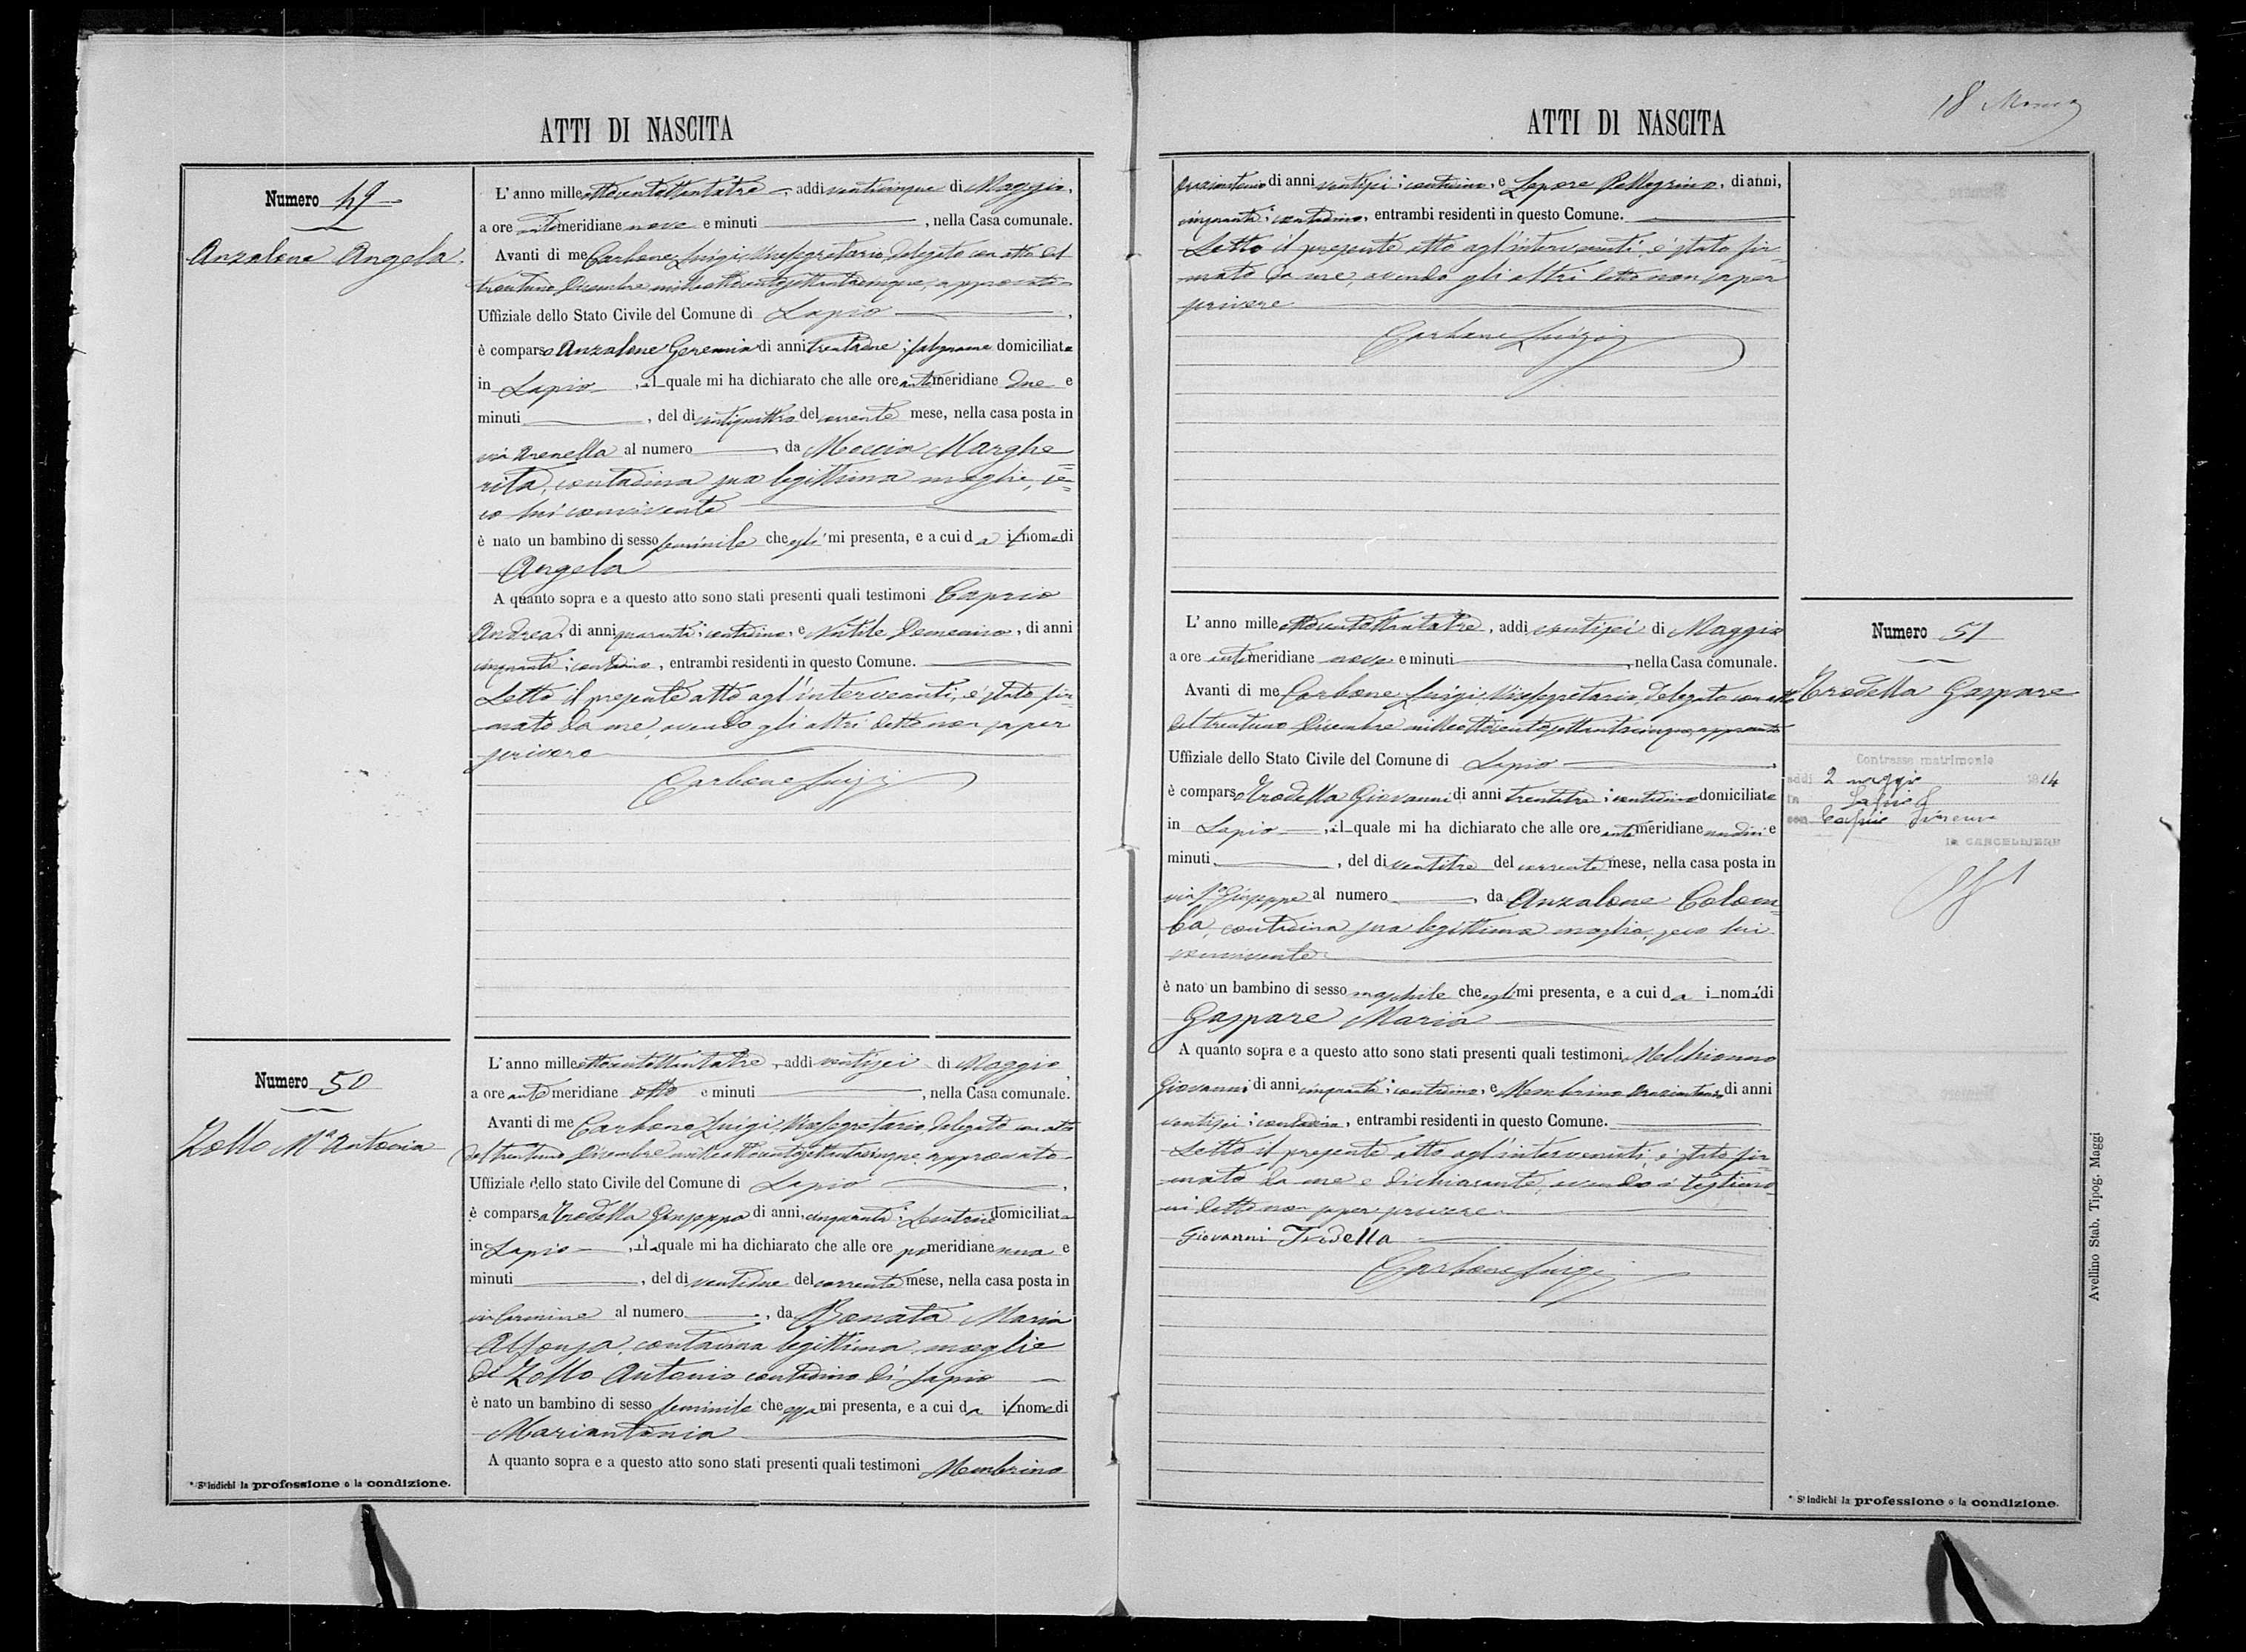 ATTI DI NASCITA
Numero 49
Anzalone Angela
L'anno milleottocentottantatre, addì venticinque di Maggio,
a ore antimeridiane nove e minuti , nella Casa comunale.
Avanti di me Carbone Luigi Vicesegretario, delegato con atto del
trentuno Dicembre milleottocentosettantacinque, approvato
Uffiziale dello Stato Civile del Comune di Lapio ,
è comparso Anzalone Geremia di anni trentadue; falegname domiciliato
in Lapio , il quale mi ha dichiarato che alle ore antimeridiane due e
minuti , del dì ventiquattro del corrente mese, nella casa posta in
via Arenella al numero , da Moccia Marghe=
rita, contadina sua legittima moglie, se=
co lui convivente
è nato un bambino di sesso feminile che egli mi presenta, e a cui da il nome di
Angela
A quanto sopra e a questo atto sono stati presenti quali testimoni Caprio
Andrea, di anni quaranta; contadino, e Natile , di anni
cinquanta; contadino, entrambi residenti in questo Comune.
Letto il presente atto agl'intervenuti, è stato fir=
mato da me, avendo gli altri detto non saper
scrivere
Carbone Luigi
Numero 50
Zollo Mª Antonia
L'anno milleottocentottantatre, addì ventisei di Maggio,
a ore antimeridiane otto e minuti , nella Casa comunale.
Avanti di me Carbone Luigi, Vicesegretario, delegato con atto
del trentuno Dicembre milleottocentosettantacinque, approvato
Uffiziale dello stato Civile del Comune di Lapio ,
è comparsa Trodella Giuseppa di anni cinquanta; Levatrice domiciliata
in Lapio , il quale mi ha dichiarato che alle ore pomeridiane una e
minuti , del dì ventidue del corrente mese, nella casa posta in
via Carmine al numero , da Bonata Maria
Alfonsa, contadina legittima moglie
di Zollo Antonio contadino di Lapio
è nato un bambino di sesso feminile che essa mi presenta, e a cui da il nome di
Mariantonia
A quanto sopra e a questo atto sono stati presenti quali testimoni Membrino
* S'indichi la professione o la condizione.
18
ATTI DI NASCITA
di anni ventisei; contadino, e Lepore Pellegrino, di anni,
cinquanta; contadino, entrambi residenti in questo Comune.
Letto il presente atto agl'intervenuti, è stato fir=
mato da me, avendo gli altri detto non saper
scrivere
Carbone Luigi
Numero 51
Trodella Gaspare
Contrasse matrimonio
addì 2 maggio 1914
in Lapio
con Caprio
IL CANCELLIERE
L'anno milleottocentottantatre, addì ventisei di Maggio
a ore antimeridiane nove e minuti , nella Casa comunale.
Avanti di me Carbone Luigi, Vicesegretario, delegato con atto
del trentuno Dicembre milleottocentosettantacinque, approvato
Uffiziale dello Stato Civile del Comune di Lapio ,
è comparso Trodella Giovanni di anni trentatre; contadino domiciliato
in Lapio , il quale mi ha dichiarato che alle ore antimeridiane undici e
minuti , del dì ventitre del corrente mese, nella casa posta in
via S. Giuseppe al numero , da Anzalone Colom=
ba, contadina sua legittima moglie, seco lui
convivente
è nato un bambino di sesso maschile che egli mi presenta, e a cui da i nomi di
Gaspare Maria
A quanto sopra e a questo atto sono stati presenti quali testimoni Melchionno
Giovanni di anni cinquanta; contadino, e Membrino di anni
ventisei; contadino, entrambi residenti in questo Comune.
Letto il presente atto agl'intervenuti, è stato fir=
mato da me e dichiarante, avendo i testimo=
ni detto non saper scrivere
Giovanni Trodella
Carbone Luigi
* S'indichi la professione o la condizione.
Avellino Stab. Tipog. Maggi